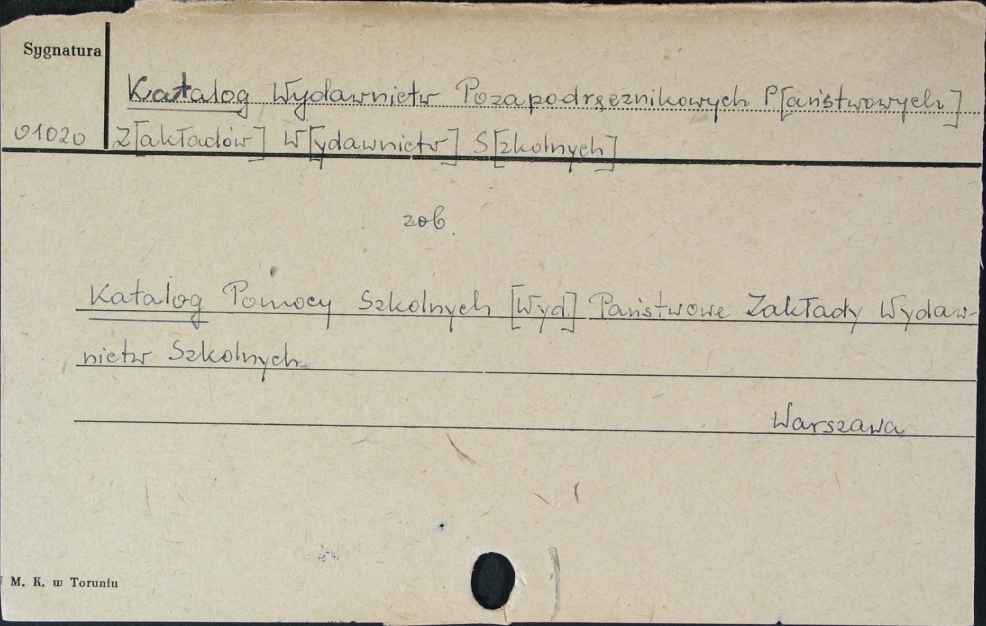 Sygnatura
Katalog Wydawnictw Pozapodręcznikowych P[aństwowych]
01020 Z[akładów] W[ydawnictw] S[zkolnych]
zob.
Katalog Pomocy Szkolnych [Wyd] Państwowe Zakłady Wydaw-
nictw Szkolnych
Warszawa
M. K. w Toruniu